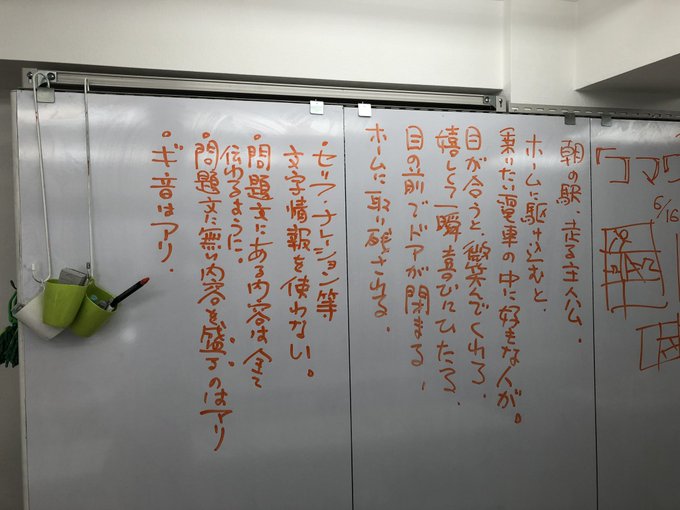 「コマワ
6/16
朝の駅、走る主人公。
ホームに駆け込むと、
乗りたい電車の中に好きな人が。
目が合うと、微笑んでくれる。
嬉しくて一瞬喜びにひたる、
目の前でドアが閉まる、
ホームに取り残される。
・セリフ・ナレーション等
文字情報を使わない。
・問題文にある内容は全て
伝わるように。
・問題文に無い内容を盛るのはアリ
・ギ音はアリ.